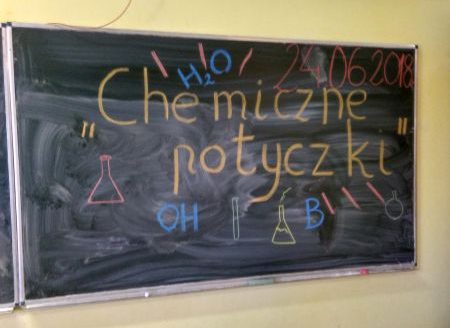 H₂O 24.06.2018
Chemiczne
"potyczki"
OH B